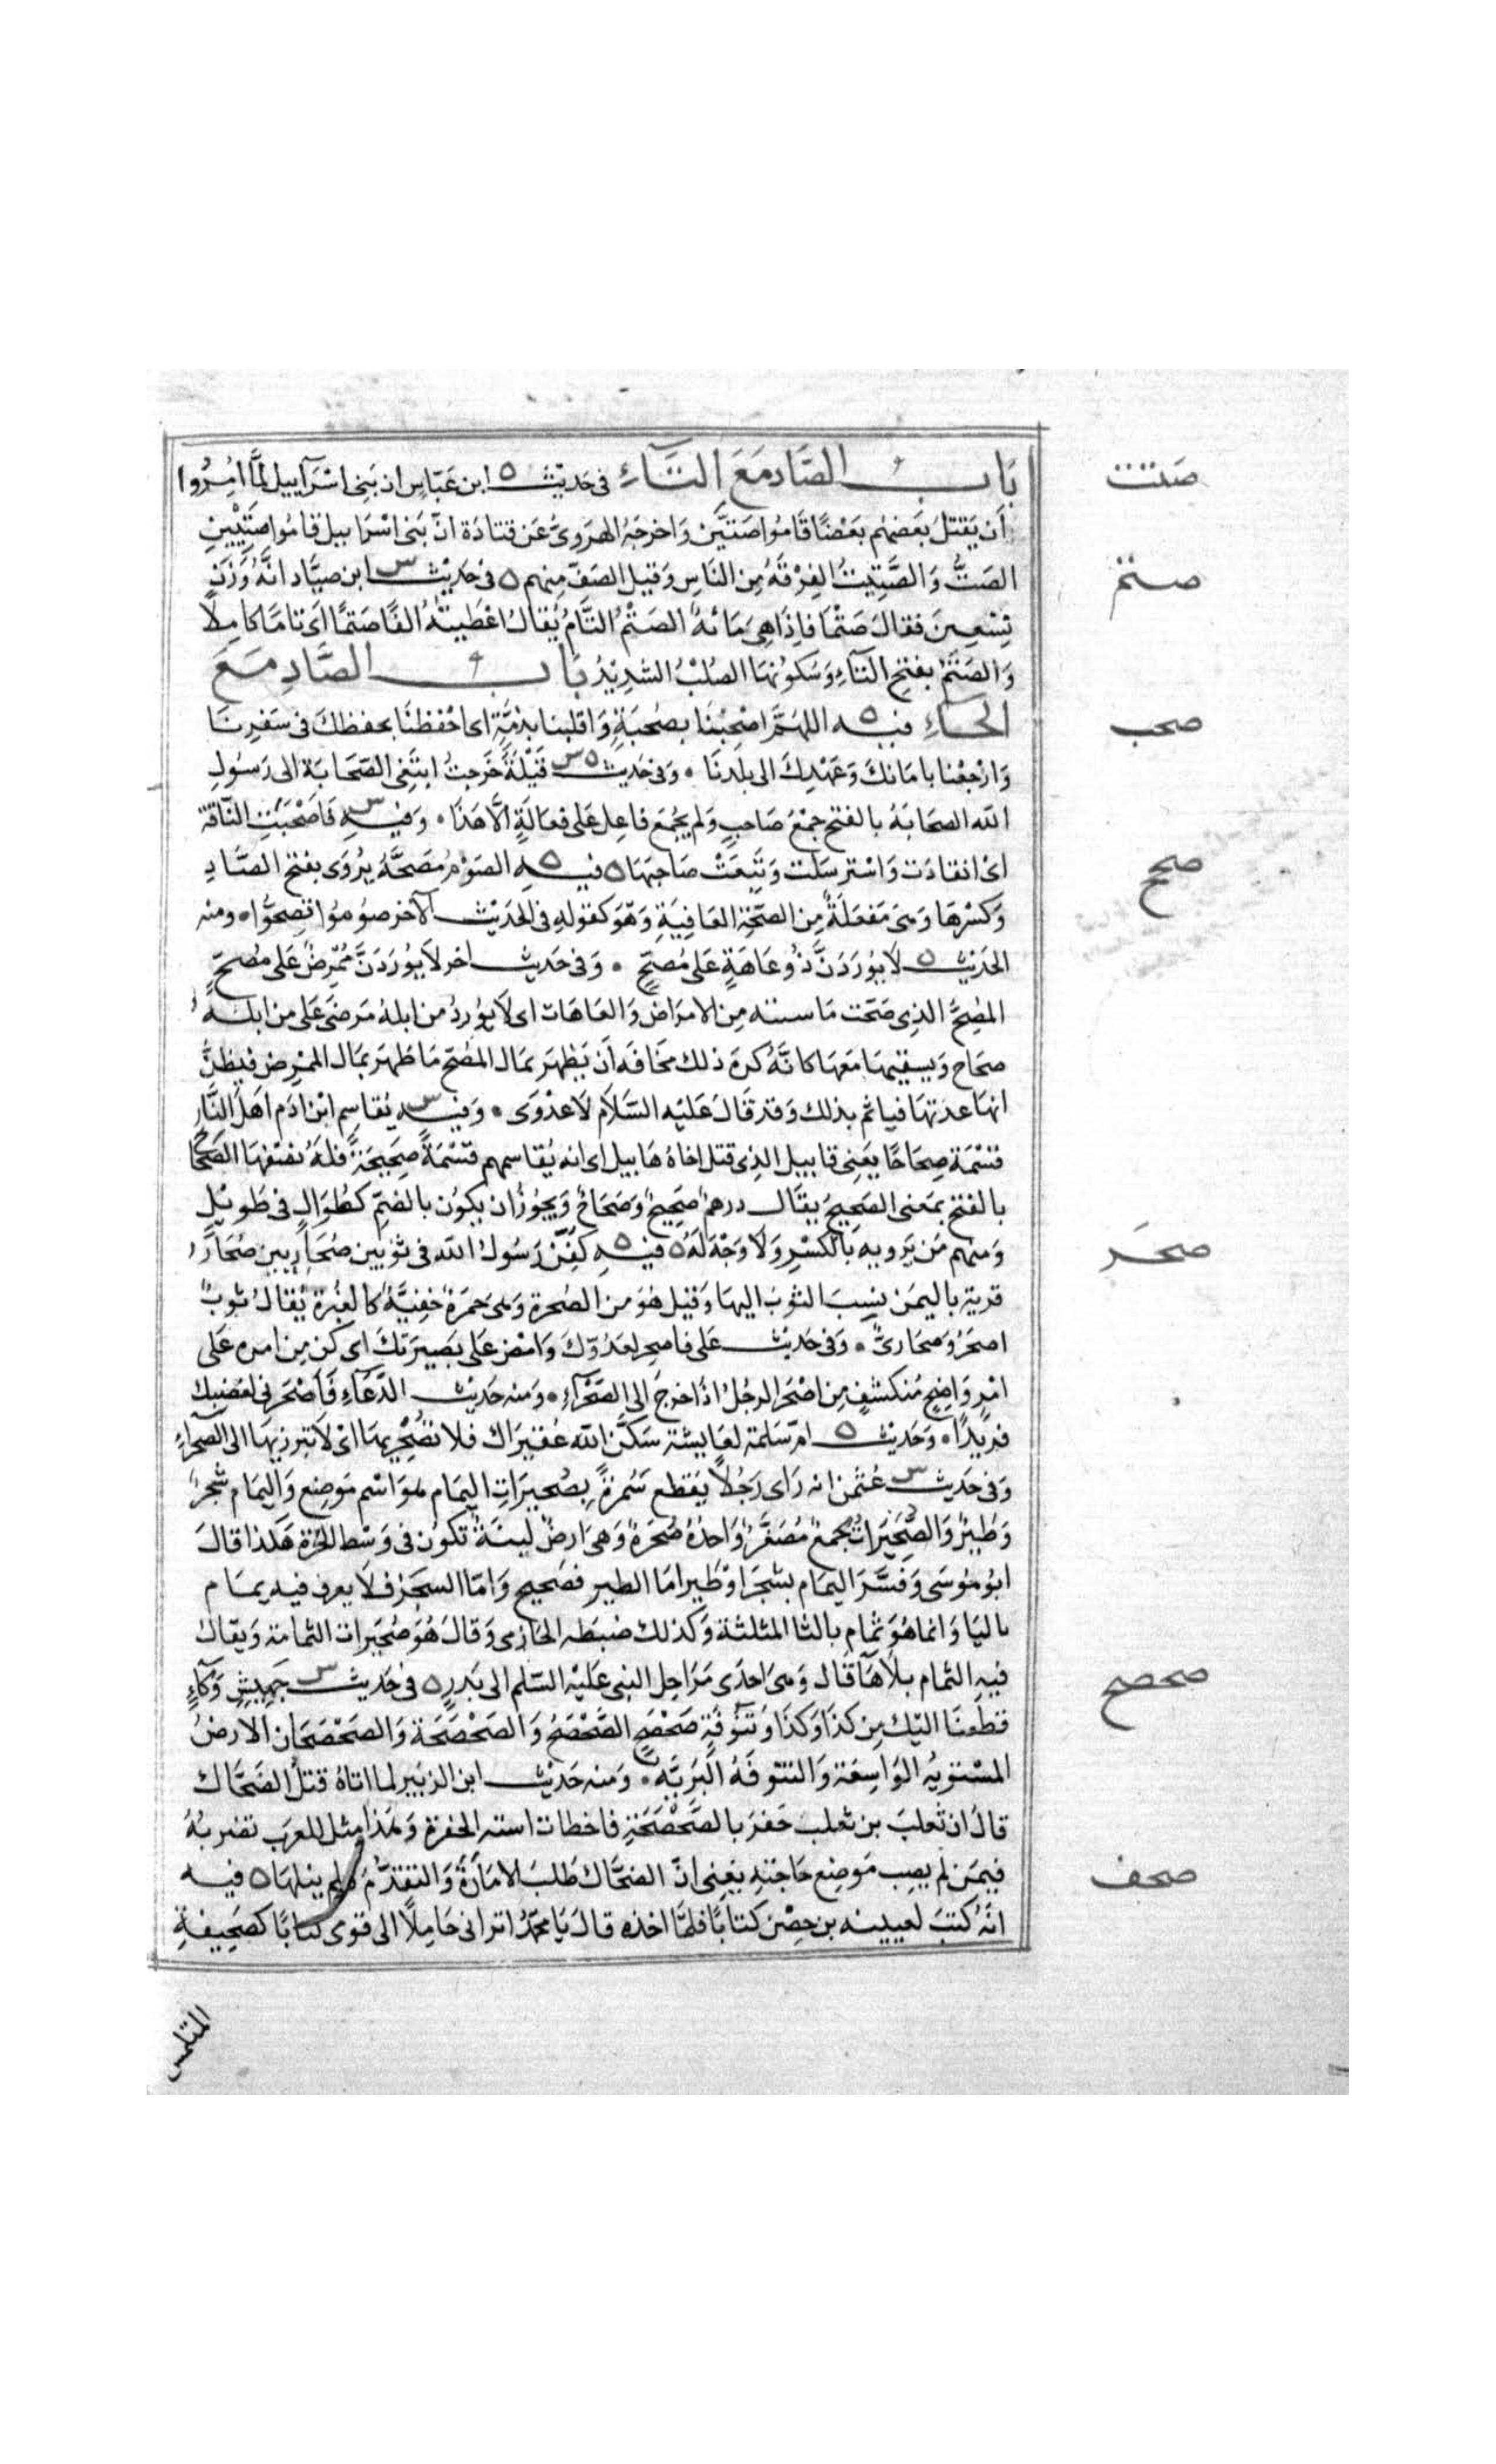 باب الصَّاد مَعَ التَّاءِ فى حَديث ه ابن عَبّاسٍ ان بَنِى اسْرَآييل لمَّا امِرُوا
صتت
أن يَقتلَ بعَضهُم بعَضًا قَامُوا صَتَّين وَاخرجَهُ الهرَوىُّ عَن قتادَة انّ بَنى اسْرَاييل قامُوا صَتِيْتَيْنِ
الصَتُّ وَالصَّتِيْتُ الفِرْقَهُ مِن النَاسِ وَقيل الصَفّ مِنهم ه فى حَدِيْث س ابن صيَّاد انَّهُ وَزَنَ
صتم
تِسْعِينَ فقالَ صَتْمًا فاِذَا هِىَ مَائهٌ الصَتْمُ التَّامُ يُقالُ اعْطَيتُهُ الفًا صَتمًا اىَ تامًا كامِلاً
وَالصَتَمُ بفتح التآءِ وَسكونهَا الصُلْبُ الشدِيْدُ بَاب الصَّادِ مَعَ
الحَاءِ فيه ه اللهُمَّ اصْحِبْنَا بصُحبَةٍ وَاقلبنا بذمَّةٍ اى احْفظنَا بحفظكَ فى سَفرِنَا
صحب
وَارْجعْنا بامَانكَ وَعَهْدِكَ الى بلَدنَا ٠ وَفى حَديث ه س قَيْلَةَ خَرجتُ ابتَغِى الصَحَابَة الى رَسُولِ
الله الصحَابَةُ بالفتح جمْعُ صَاحبٍ وَلم يُجمَع فاعِل عَلى فعَالَةٍ الَّا هَذَا ٠ وَفيه س فَاصْحَبَتِ النَّاقة
اىْ انقادَت وَاسْترسَلت وَتَبعَتْ صَاحِبَهَا ه فيه ه الصَوْمُ مَصَحَّةٌ يرُوَى بفتح الصَّادِ
صحح
وَكسْرهَا وَهىَ مَفعَلَةٌ مِن الصّحَّةِ العَافِيَةِ وَهوَ كقولهِ فى الحَدَيْث الآخر صوُموُا تصِحُّوا ٠ ومنه
الحَدَيْث ه لاَ يوُرَدَنَّ ذُو عَاهَةٍ عَلى مُصحٍّ ٠ وَفى حَديث اخر لاَ يوُرَدَنَّ مُمْرِضٌ عَلى مُصحٍّ
المُصِحُّ الذِى صَحّت مَاسيته مِن الامرَاض وَالعَاهَات اى لاَ يوُردُ من ابلهُ مَرضَى عَلى من ابلهُ
صحَاح وَيسقيهَا مَعهَا كانَّهُ كرِهَ ذلك مخَافَه اَن يَظهرَ بمَال المُصحّ مَا ظهرَ بمَال المُمْرِض فيظنَّ
انهَا عدَتهَا فياثم بذلك وَقد قَالَ عَليْه السَّلَام لَا عَدْوَى ٠ وَفيه س يُقاسِم ابْن ادَم اهَل النَّارِ
قسْمَة صِحَاحًا يعَنِى قابيل الذِى قتل اخَاهُ هَابيل اى انه يُقاسمهم قسْمَةً صِحيحَةً فلهُ نصْفهَا الصَّحَاح
بالفتح بمَعنى الصَحِيحُ يقَال درهم صَحِيح وَصَحَاحٌ وَيجوُزُ ان يكوُن بالضمّ كطُوَالٍ فى طَويْلٍ
وَمنهم مَن يَرويه بالكَسْرِ وَلاَ وَجْهَ لَهُ ه فيه ه كفِّنَ رَسُول الله فى ثوْبين صُحَارِيين صُحَارٌ
صحَر
قرية باليمَن نسِبَ الثوبُ اليهَا وَقيل هُوَ من الصُحرة وَهىَ حُمرَةٌ خفِيَّةٌ كالغُبْرَة يُقالُ ثوبٌ
اصحَرُ وَصحَارىٌّ ٠ وَفى حَديث عَلى فاصحِر لعَدُوّكَ وَامْضِ عَلى بَصِيرَتكَ اى كُن مِن امره عَلى
امْرٍ وَاضِحٍ مُنكَشفٍ مِن اصْحَرَ الرجُلُ اذَا خرجَ الى الصّحْرَآءِ ٠ وَمنه حَدِيث الدُّعَآءِ فَاَصْحَر بى لغضبكَ
فريْدًا ٠ وَحَديث ه امّ سَلمة لعَايشة سَكَّن الله عُقَيْرَاك فلا تصْحِريهَا اىْ لاَ تبرزيهَا الى الصّحرَآءِ
وَفى حَديث س عُثمٰن انه رَاى رَجُلاً يَقطع سَمُرةً بصُحيْرَاتِ اليمَام هوَ اسْم مَوضع وَاليمَام شجرٌ
وَطيرٌ وَالصُّحَيْرَاتُ جمعٌ مُصَغَّرٌ وَاحدُهُ صُحْرَةٌ وَهىَ ارضٌ لينَةٌ تكوُن فى وَسَط الحَرَّة هَكذا قالَ
ابُو مُوسَى وَفسَّرَ اليمَام بشجَرٍ اوْ طيرٍ امَا الطير فصَحيح وَامّا الشجَر فلَا يعرف فيه يمَام
باليَا وَانما هوَ ثمَام بالثا المثلثة وَكذلك ضبَطه الحَازمى وَقالَ هُوَ صُحَيرات الثمامَة وَيقالُ
فيهِ الثمام بلَا هَآ قالَ وَهىَ احدَى مَرَاحِل النبى عَليْه السّلم الى بَدرٍ ه فى حَديث س جهَيشٍ وَكَاءٍ
صحصح
قطعنَا اليْكَ مِن كذَا وَكذَا وَتنُوفَةٍ صَحْصَحٍ الصَّحْصَحُ وَالصَحْصَحَة وَالصَحْصَحَان الارضُ
المسْتويهُ الوَاسعَة وَالتنُوفَةُ البَريَّه ٠ وَمنه حَديْث ابن الزبَير لما اتاهُ قتلُ الضَحَّاك
قالَ ان ثعلبَ بن ثعلب حَفرَ بالصَّحْصَحَةِ فاخطات استه الحفرة وَهذا مثل للعَرَب تضربُهُ
فيمَن لم يصِب مَوضِع حَاجَتهِ يعَنِى انَّ الضحّاك طَلبَ الامَارَةَ وَالتقدُّم فلم ينلهَا ه فيه
صحف
انّهُ كتبَ لعيينه بن حِصْن كتابًا فلمَّا اخذه قالَ يَا محمّدُ اترانى حَامِلاً الى قومى كتابًا كصَحِيفةِ
المتلمس